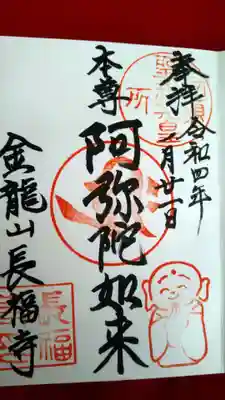 奉拝 令和四年
月廿一日
本尊
阿弥陀如来
金龍山長福寺
長福